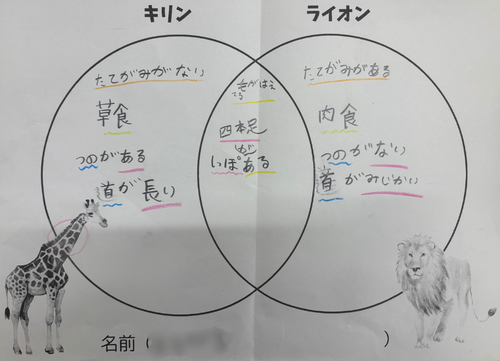 キリン
ライオン
たてがみがない
草食
つのがある
道が長い
毛がはえ
てる
四本足
しっぽが
ある
たてがみがある
肉食
つのがない
首がみじかい
名前(
)